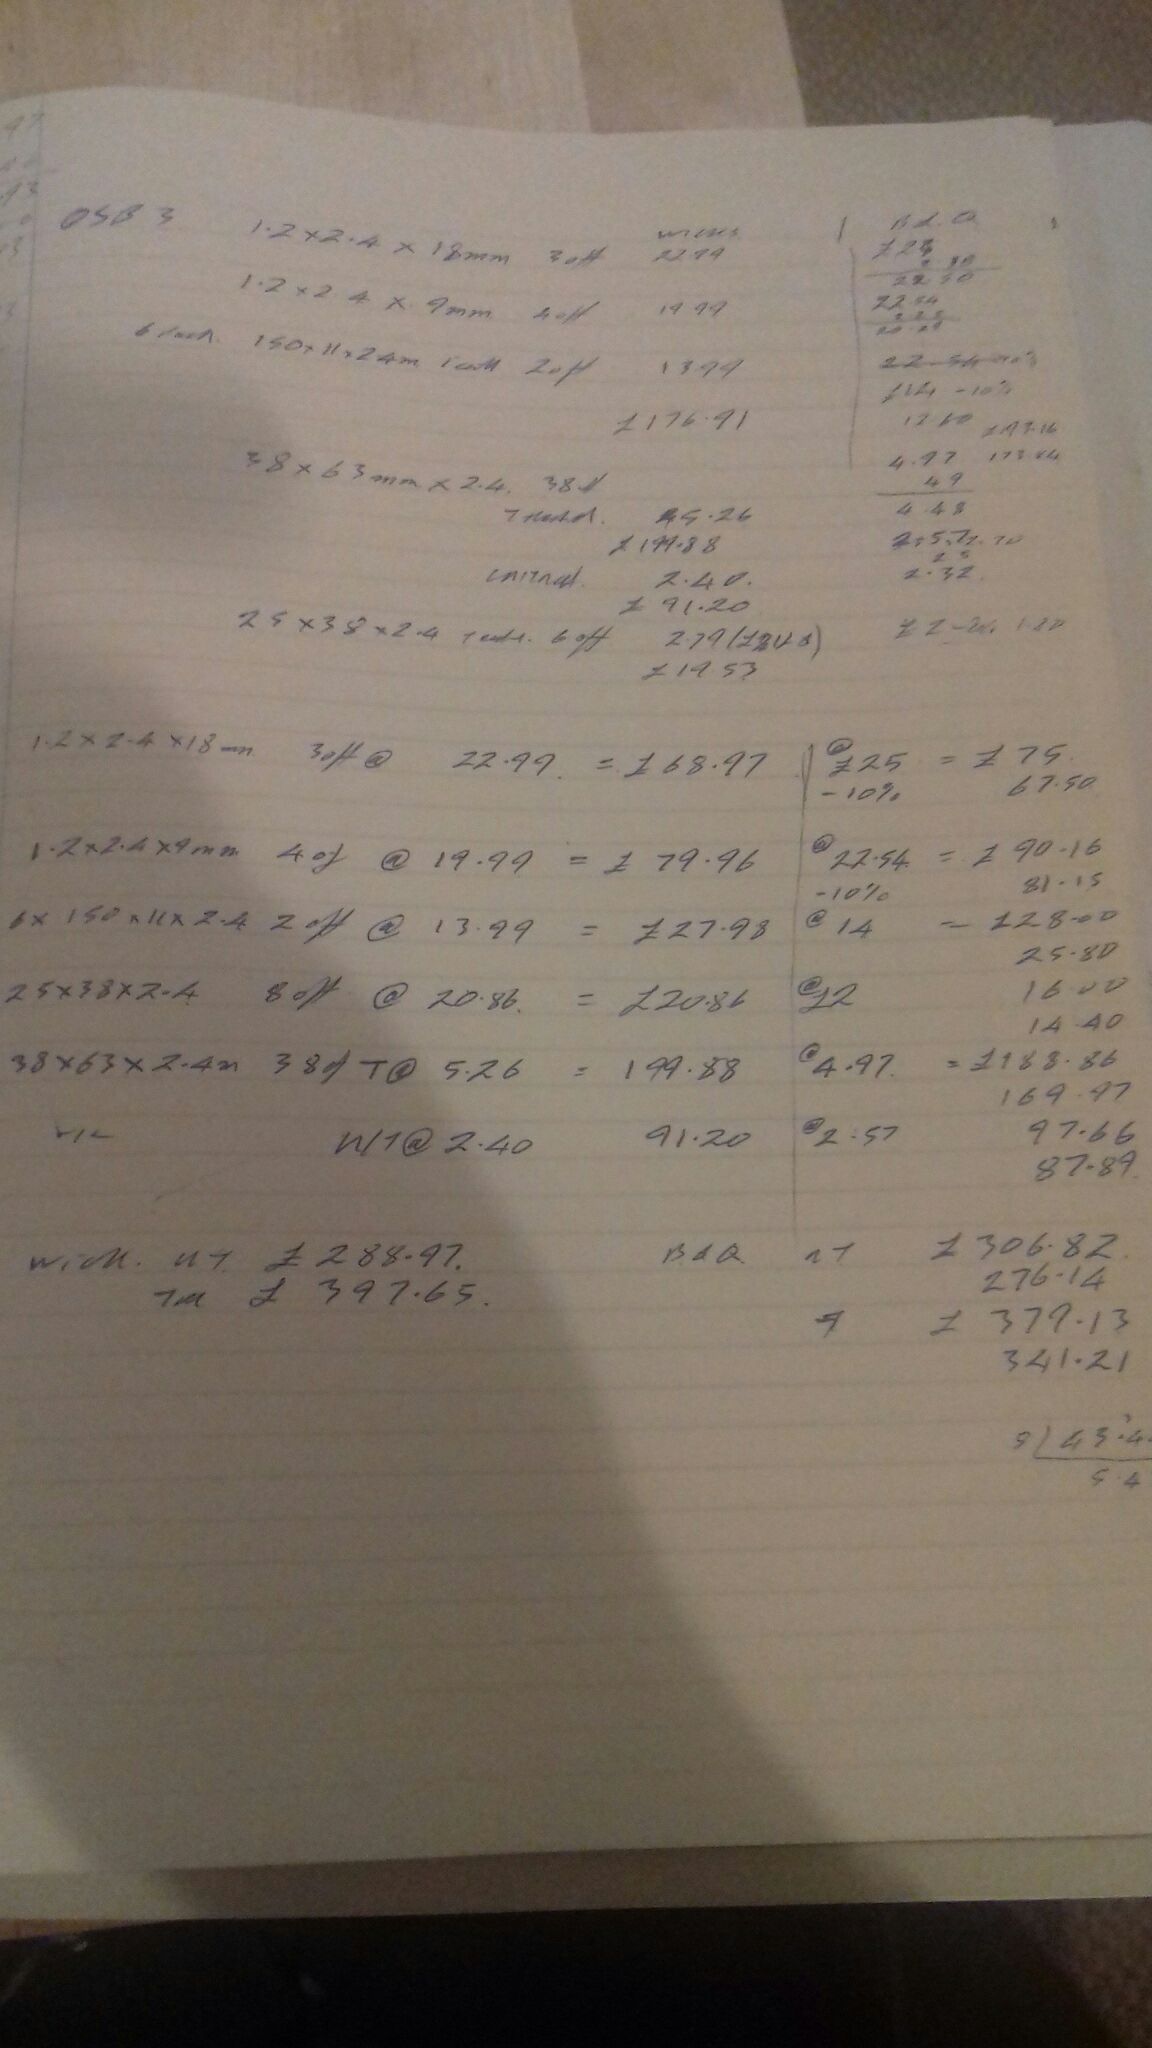 OSB 3 1.2 x 2.4 x 18mm 3 off 22.99 £25
22 50
1.2 x 2.4 x 9mm 4 off 19 99 22 54
20.29
150 x 11 x 2.4m 2 off 13 99 22.54
£14 -10%
£176.91 12.60
38 x 63mm x 2.4. 38 4.97
49
5.26 4.48
£199.88
2.40. 2.32
£91.20
25 x 38 x 2.4 6 off 2.79
£19 53
1.2 x 2.4 x 18mm 3 off @ 22.99 = £68.97 @ £25 = £75
-10% 67.50
1.2 x 2.4 x 9mm 4 of @ 19.99 = £79.96 @ 22.54 = £90.16
-10% 81.15
6 x 150 x 11 x 2.4 2 off @ 13.99 = £27.98 @ 14 = £28.00
25.80
25 x 38 x 2.4 8 off @ 20.86 = £20.86 @ £2 16.00
14.40
38 x 63 x 2.4m 38 of T @ 5.26 = 199.88 @ 4.97 = £188.86
169.97
N/T @ 2.40 91.20 @ 2.57 97.66
87.89
£288.97. B&Q nT £306.82
£397.65. 276.14
£379.13
341.21